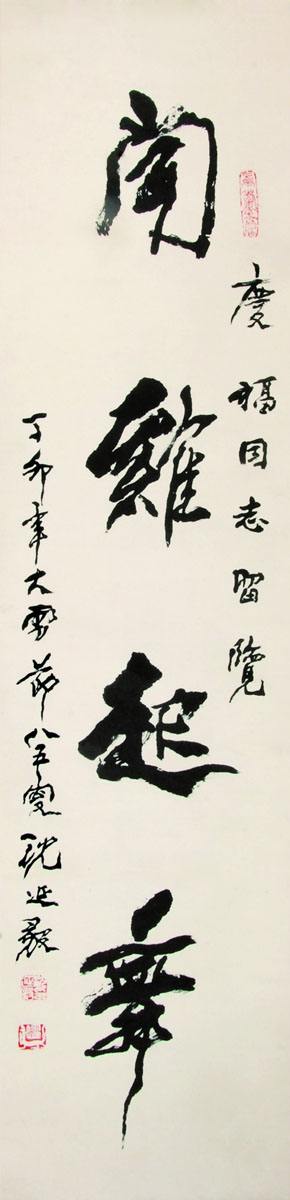 慶福同志留覽
聞雞起舞
丁卯年大雪節八五叟沈延毅